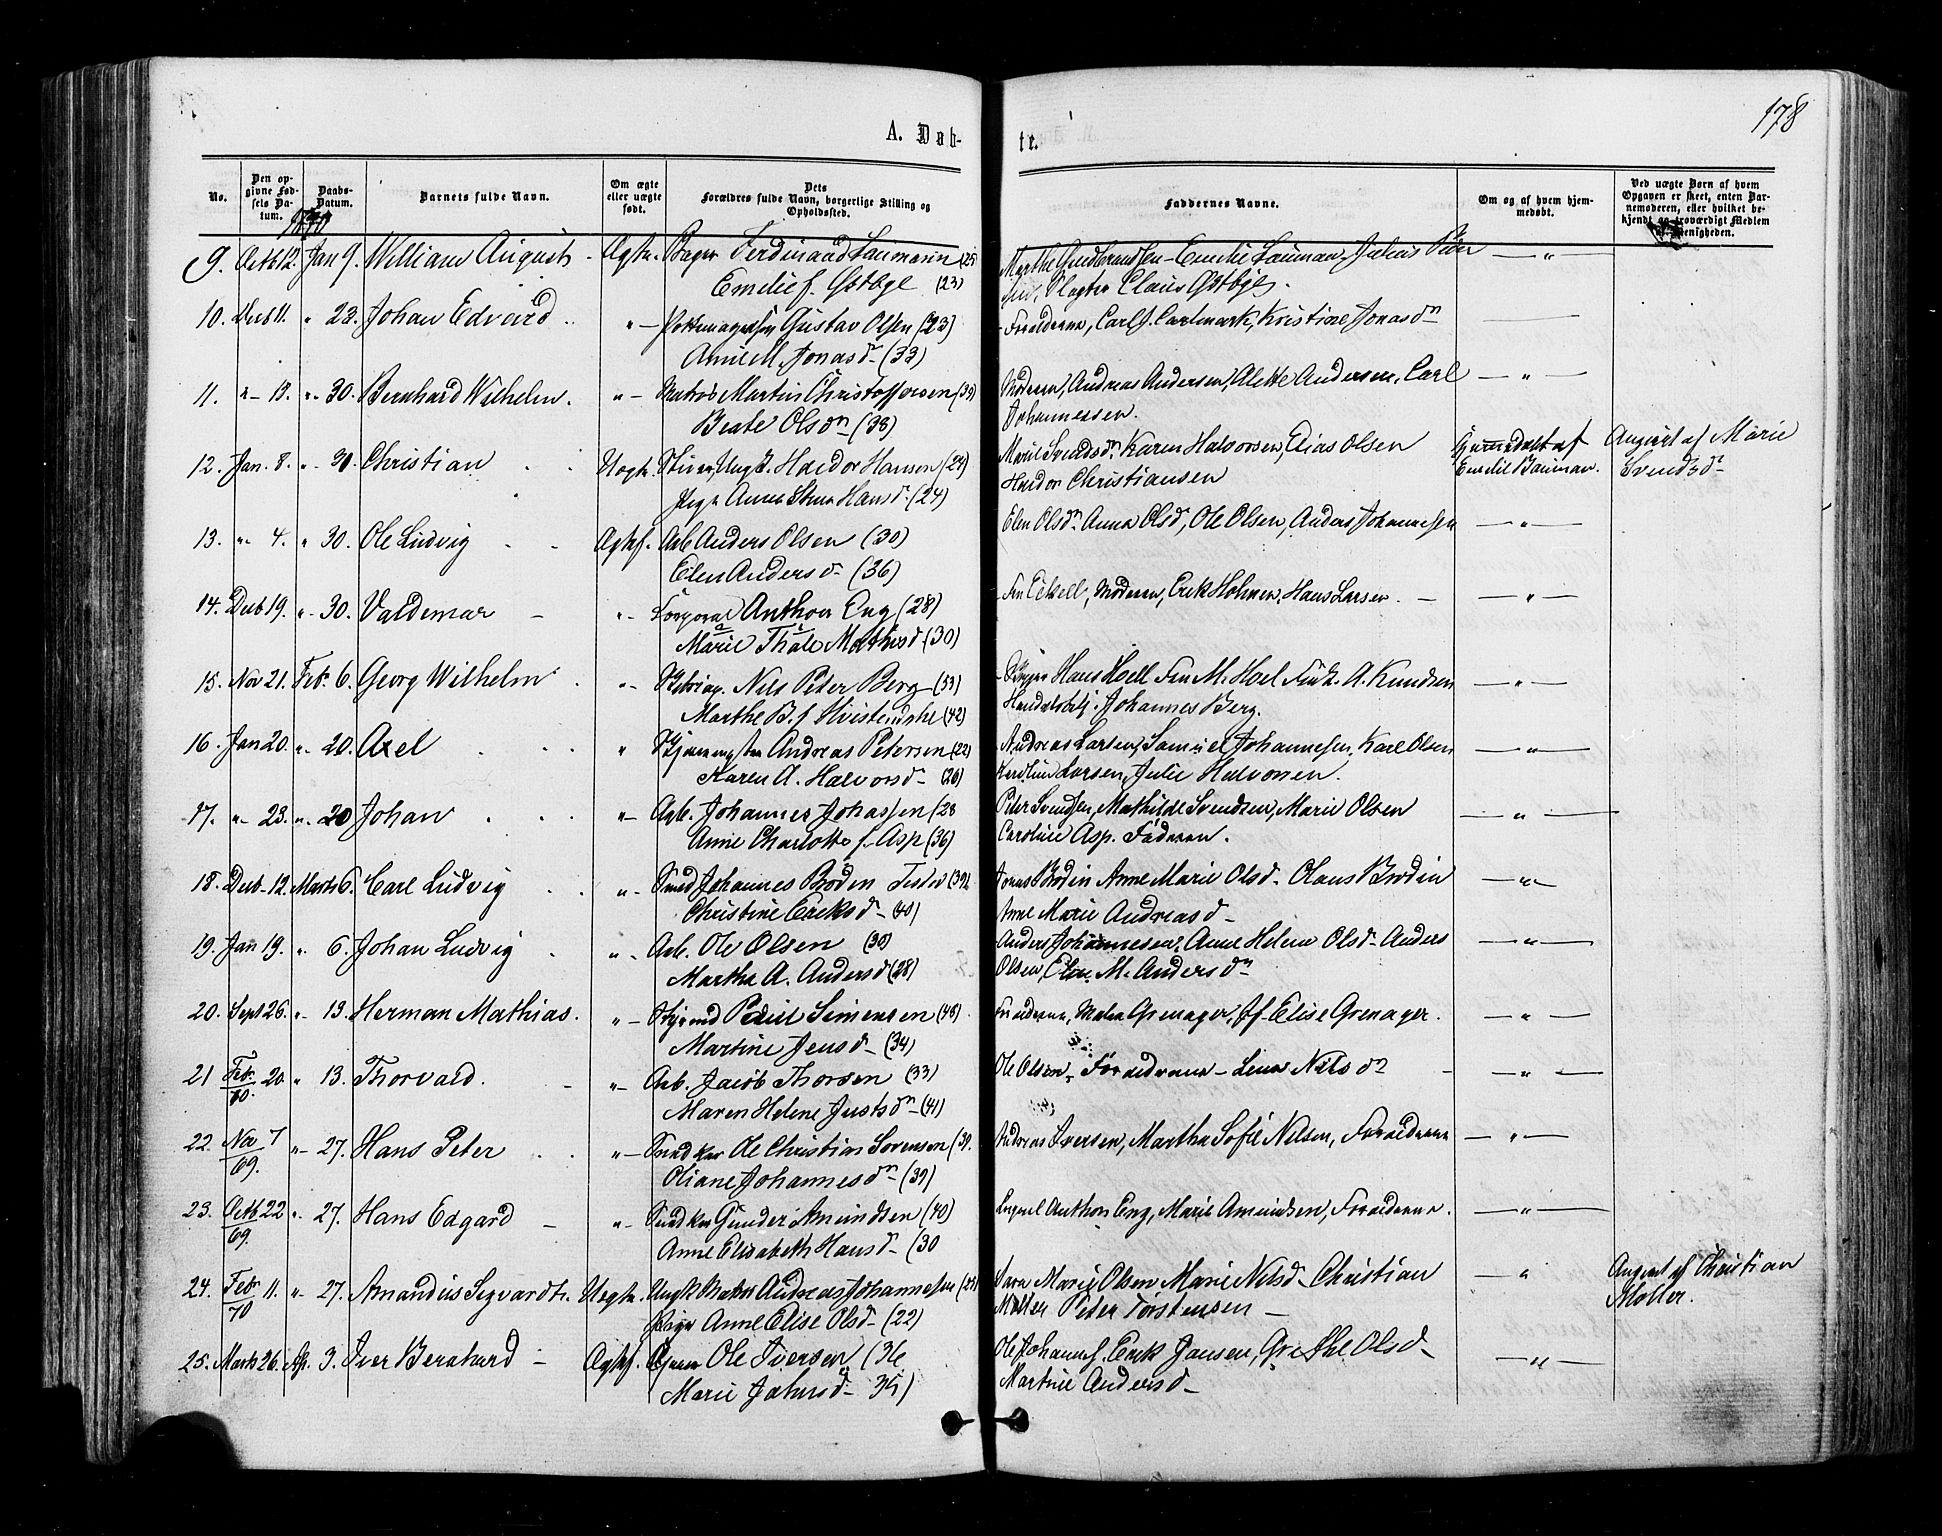 178
A. Døb-
te.
No.
Den op-
givne Fød-
sels Da-
tum.
Daabs-
Datum.
Barnets fulde Navn.
Om ægte
eller uægte
født.
Dets
Forældres fulde Navn, borgerlige Stilling og
Opholdssted.
Faddernes Navne.
Om og af hvem hjem-
medøbt.
Ved uægte Børn af hvem
Opgaven er skeet, enten Bar-
nemoderen, eller hvilket be-
kjendt og troværdigt Medlem
af Menigheden.
1870
9. Octb 12. Jan 9. William August - Ægte. Bager Ferdinand Laumann (25
Emilie f. Østbye (23)
Marthe Gudbrandsen - Emilie Lauman, Julius
Slagter Claus Østbye. — " —
10. Decb 11. " 23. Johan Edvard " — Pottemagersv Gustav Olsen (23)
Anne M. Jonasd. (33)
Forældrene, Carl J. Carlmark, Kristine Jonasdn —
11. " - 13. " 30. Bernhard Wilhelm. " - Matros Martin Christoffersen (39)
Beate Olsdn (38)
Moderen, Andreas Andersen, Alette Andersen, Carl
Johannessen. — " —
12. Jan. 8. " 30. Christian Uægte. Ungk. Haldor Hansen (24)
Pige Anna Hansd. (24)
Marie Svendsdn Karen Halvorsen, Elias Olsen
Haldor Christiansen
Hjemmedøbt af
Emelie Bauman.
Angivet af Marie
Svendsdn
13. " 4. " 30. Ole Ludvig Ægtef. Arb Anders Olsen (30)
Elen Andersd. (36)
Elen Olsdn Anna Olsd, Ole Olsen, Anders Johannesen — " —
14. Decb 19. " 30. Valdemar " - Corporal Anthon Eng (28)
Marie Thale Mathisd. (30)
Moderen, Erik Holmen, Hans Larsen. — " —
15. Nov 21. Feb. 6. Georg Wilhelm " - Nils Peter Berg (53)
Marthe B. f Hvistendahl (42)
Hans Hoell Frk M. Hoel Frk. A. Knudsen
Handelsbtj. Johannes Berg. — " —
16. Jan 20. " 20. Axel " Andreas Petersen (22)
Karen A. Halvorsd. (26)
Andreas Larsen, Samuel Johannesen, Karl Olsen
Karoline Larsen, Julie Halvorsen. — " —
17. " 23. " 20 Johan " - Arb. Johannes Johassen (28
Anne Charlotte f. Asp (36)
Peter Svendsen, Mathilde Svendsen, Marie Olsen
Caroline Asp. Faderen. — " —
18. Decb 12. Marts 6. Carl Ludvig " - Smed Johannes Broden (39)
Christine Eriksd. (40)
Jonas Brodin Anne Marie Olsd. Olaus Brodin
Anne Marie Andreasd. — " —
19. Jan 19. " 6. Johan Ludvig " - Arb. Ole Olsen (30)
Martha A. Andersd (28)
Anders Johannesen, Anne Helene Olsd. Anders
Olsen, Elen M. Andersdn — " —
20. Sept 26. " 13. Herman Mathias. " - Styrmd Paul Simensen (48)
Martine Jensd. (34)
Forældrene, Malea Grenager, Jf. Elise Grenager. — " —
21 Feb. 20. " 13. Thorvald. " - Arb. Jacob Thorsen (33)
70. Maren Helene Justsdn (41)
Ole Olsen, Forældrene - Lina Nilsdn — " —
22. Nov 7 " 27. Hans Peter " - Snedker Ole Christian Sørensen (39.
69. Oliane Johannesdn (39)
Andreas Iversen, Martha Sofie Nilsen, Forældrene — " —
23. Octb 22 " 27. Hans Edgard " - Snedker Gunder Amundsen (40)
69. Anne Elisabeth Hansd. (30
Anthon Eng, Marie Amundsen, Forældrene. — " —
24. Feb. 11. " 27. Amandus Sigvardt. Uægte. Ungk Matros Andreas Johannesen
70 Pige Anne Elise Olsd. (22)
Marie Olsen Marie Nilsd. Christian
Møller Peter Torstensen — "
Angivet af Christian
Møller.
25. Marts 26. Ap. 3. Iver Bernhard Ægtef. Ole Iversen (36
Marie 35)
Ole Johannes. Erik Jansen, Grethe Olsd.
Martine Andersd. — " —